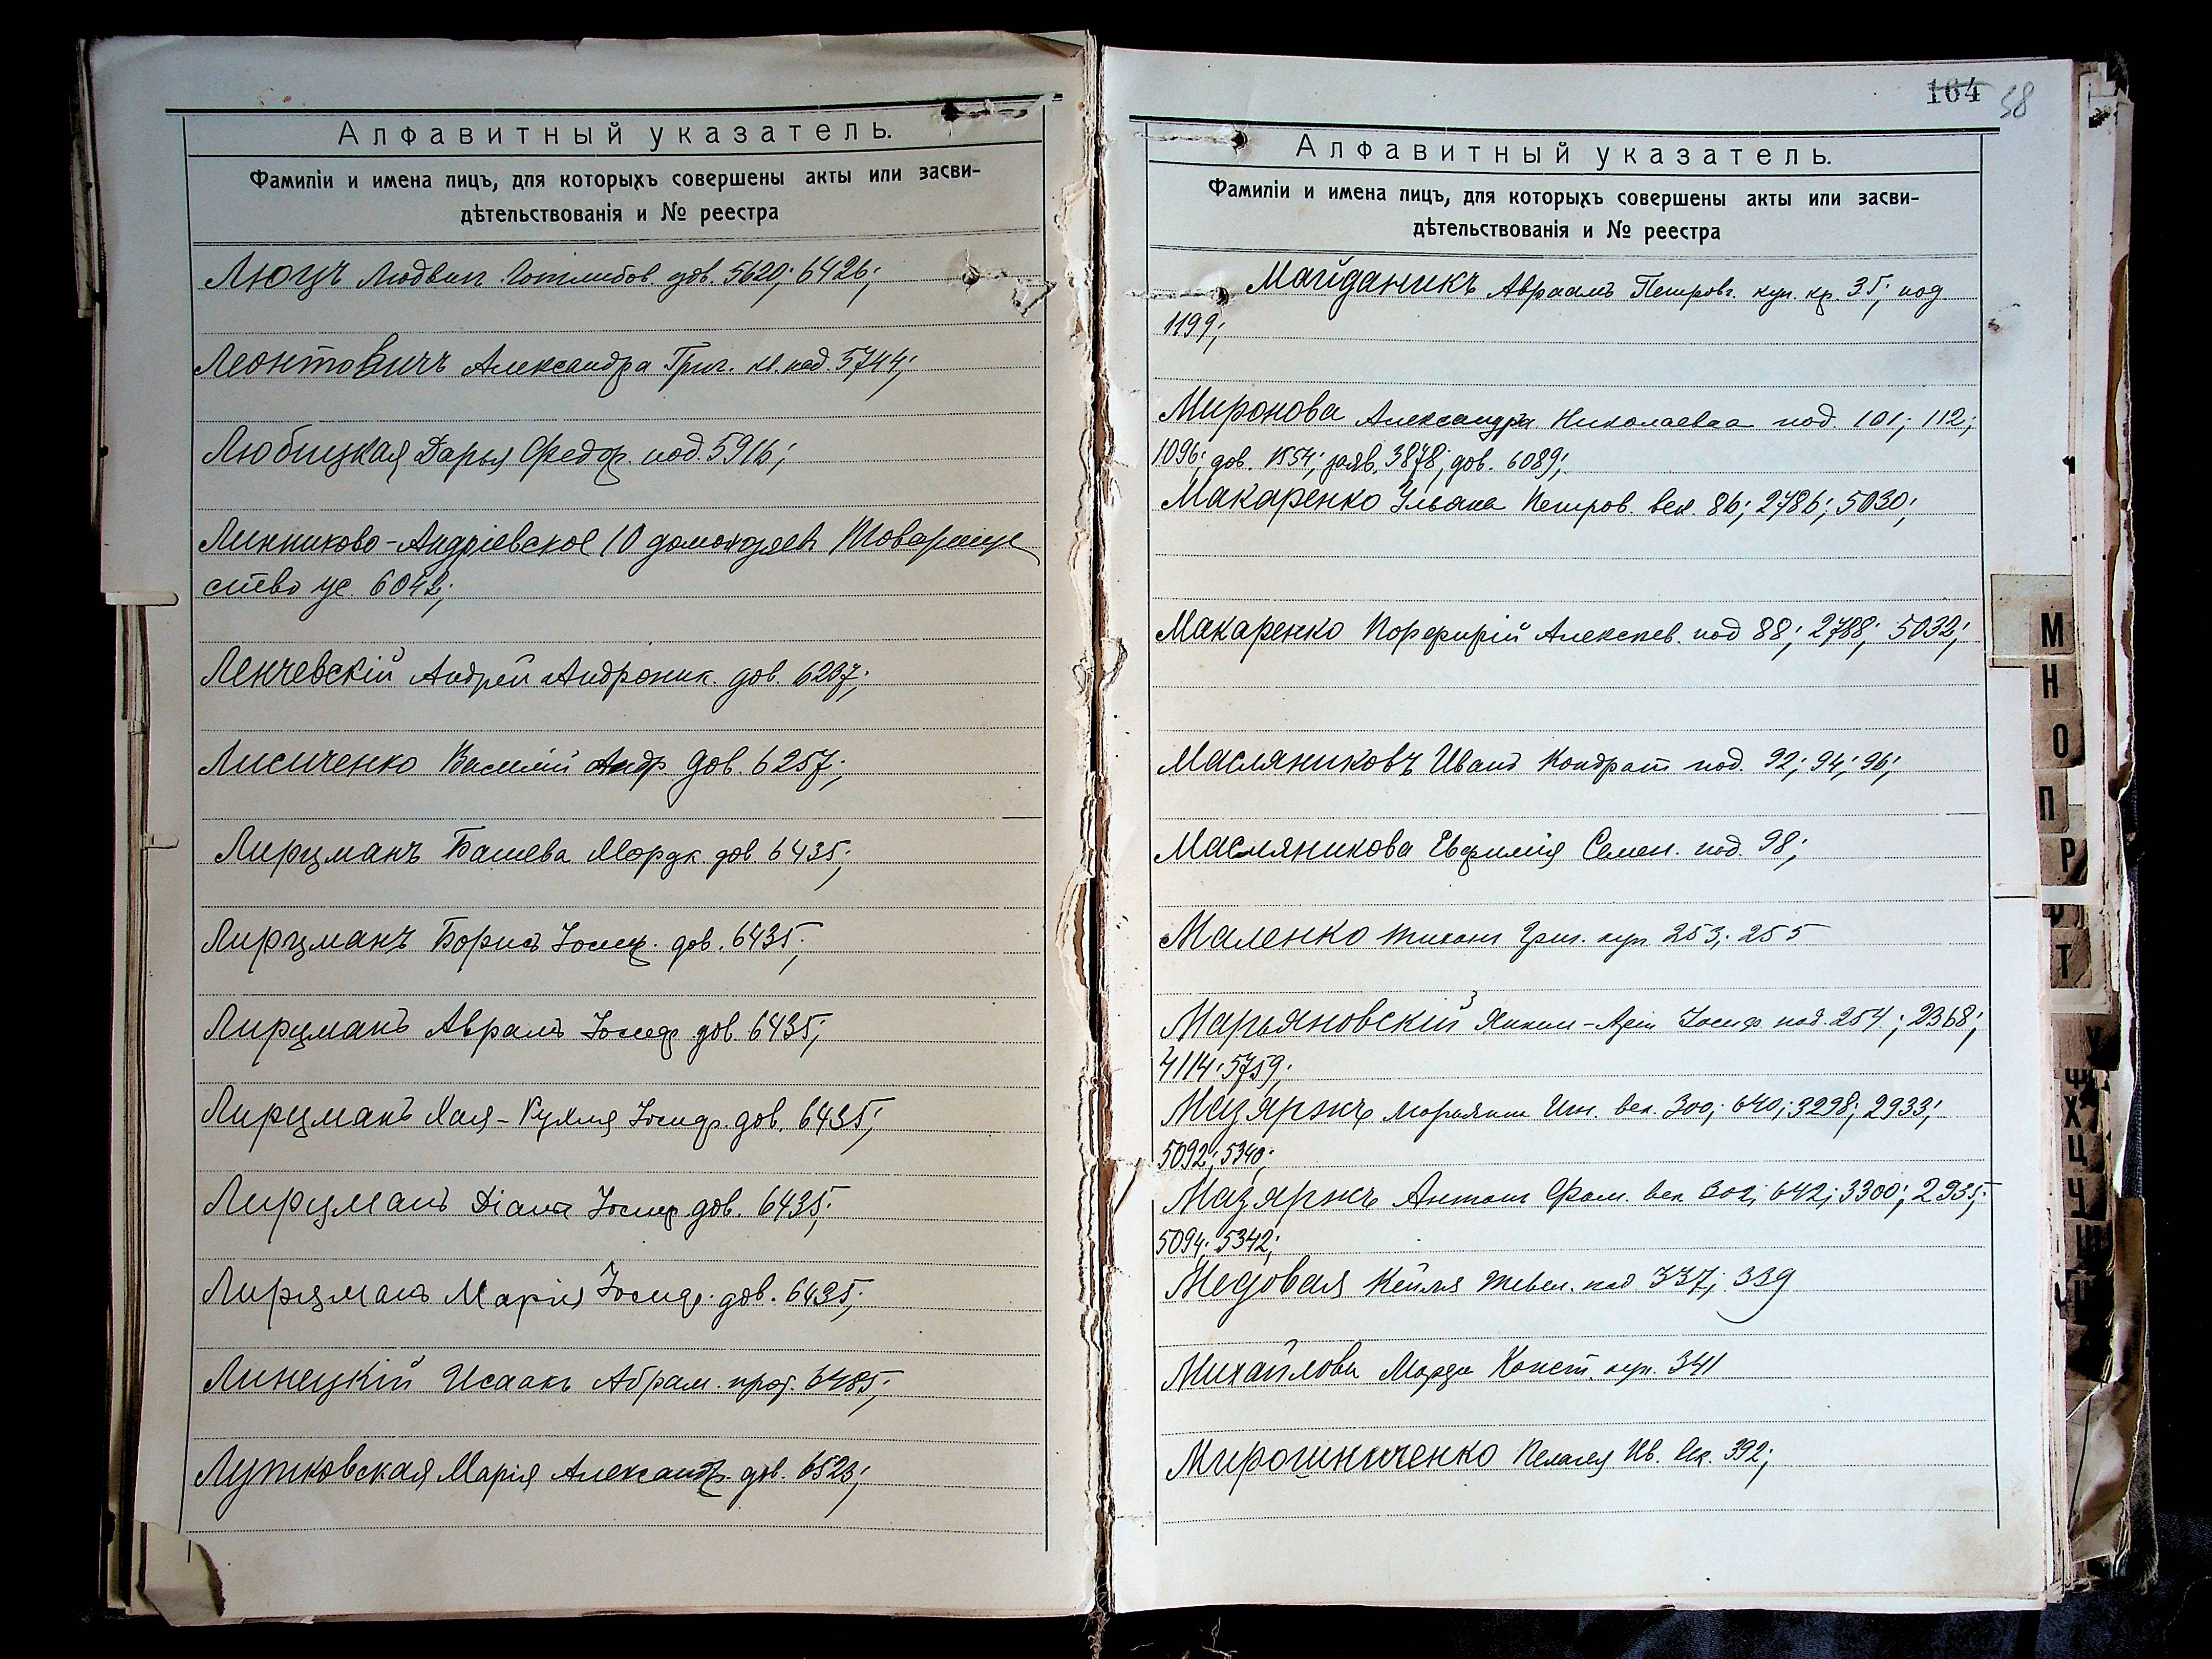 Алфавитный указатель.
Фамиліи и имена лицъ, для которыхъ совершены акты или засви-
дѣтельствованія и № реестра
Люцъ Людвиг Готлибов. дов. 5620; 6426;
Леонтовичъ Александра Григ. кл. под. 5744;
Любицкая Дарья Федор. под. 5916;
Андріевское 10 Товарище
ство ус. 6042;
Ленчевскій Андрей Андроник. дов. 6207;
Лисиченко Василій Андр. дов. 6257;
Лирцманъ Башева Мордк. дов. 6435;
Лирцманъ Борисъ Іосиф. дов. 6435;
Лирцманъ Авраамъ Іосиф. дов. 6435;
Лирцманъ Хая- Іосиф. дов. 6435;
Лирцманъ Діана Іосиф. дов. 6435;
Лирцманъ Марія Іосиф. дов. 6435;
Линецкій Исаакъ Абрам. прот. 6485;
Лутковская Марія Александр. дов. 6523;
164 58
Алфавитный указатель.
Фамиліи и имена лицъ, для которыхъ совершены акты или засви-
дѣтельствованія и № реестра
Майданикъ Авраамъ Петровъ. куп. кр. 35; под
1199;
Миронова Александра Николаевна под. 101; 112;
1096; дов. 1554; заяв. 3878; дов. 6089;
Макаренко Ульяна Петров. век. 86; 2786; 5030;
Макаренко Порфирій Алексеев. под 88; 2788; 5032;
Масляниковъ Иванъ Кондрат под. 92; 94; 96;
Масляникова Евфимія Семен. под. 98;
Маленко Тихон Григ. куп. 253; 255
Марьяновскій Іосиф под. 254; 2368;
4114; 5759;
Мазяржъ Марьянна Ин. век. 300; 640; 3298; 2933;
5092; 5340;
Мазяржъ Антон Фом. век 302; 642; 3300; 2935;
5094; 5342;
Медовая Кейля Тевел. под 337; 339
Михайлова Марфа Конст. куп. 341
Мирошниченко Пелагея Ив. век. 392;
М
Н
О
П
Р
Т
У
Ф
Х
Ц
Ч
Ш